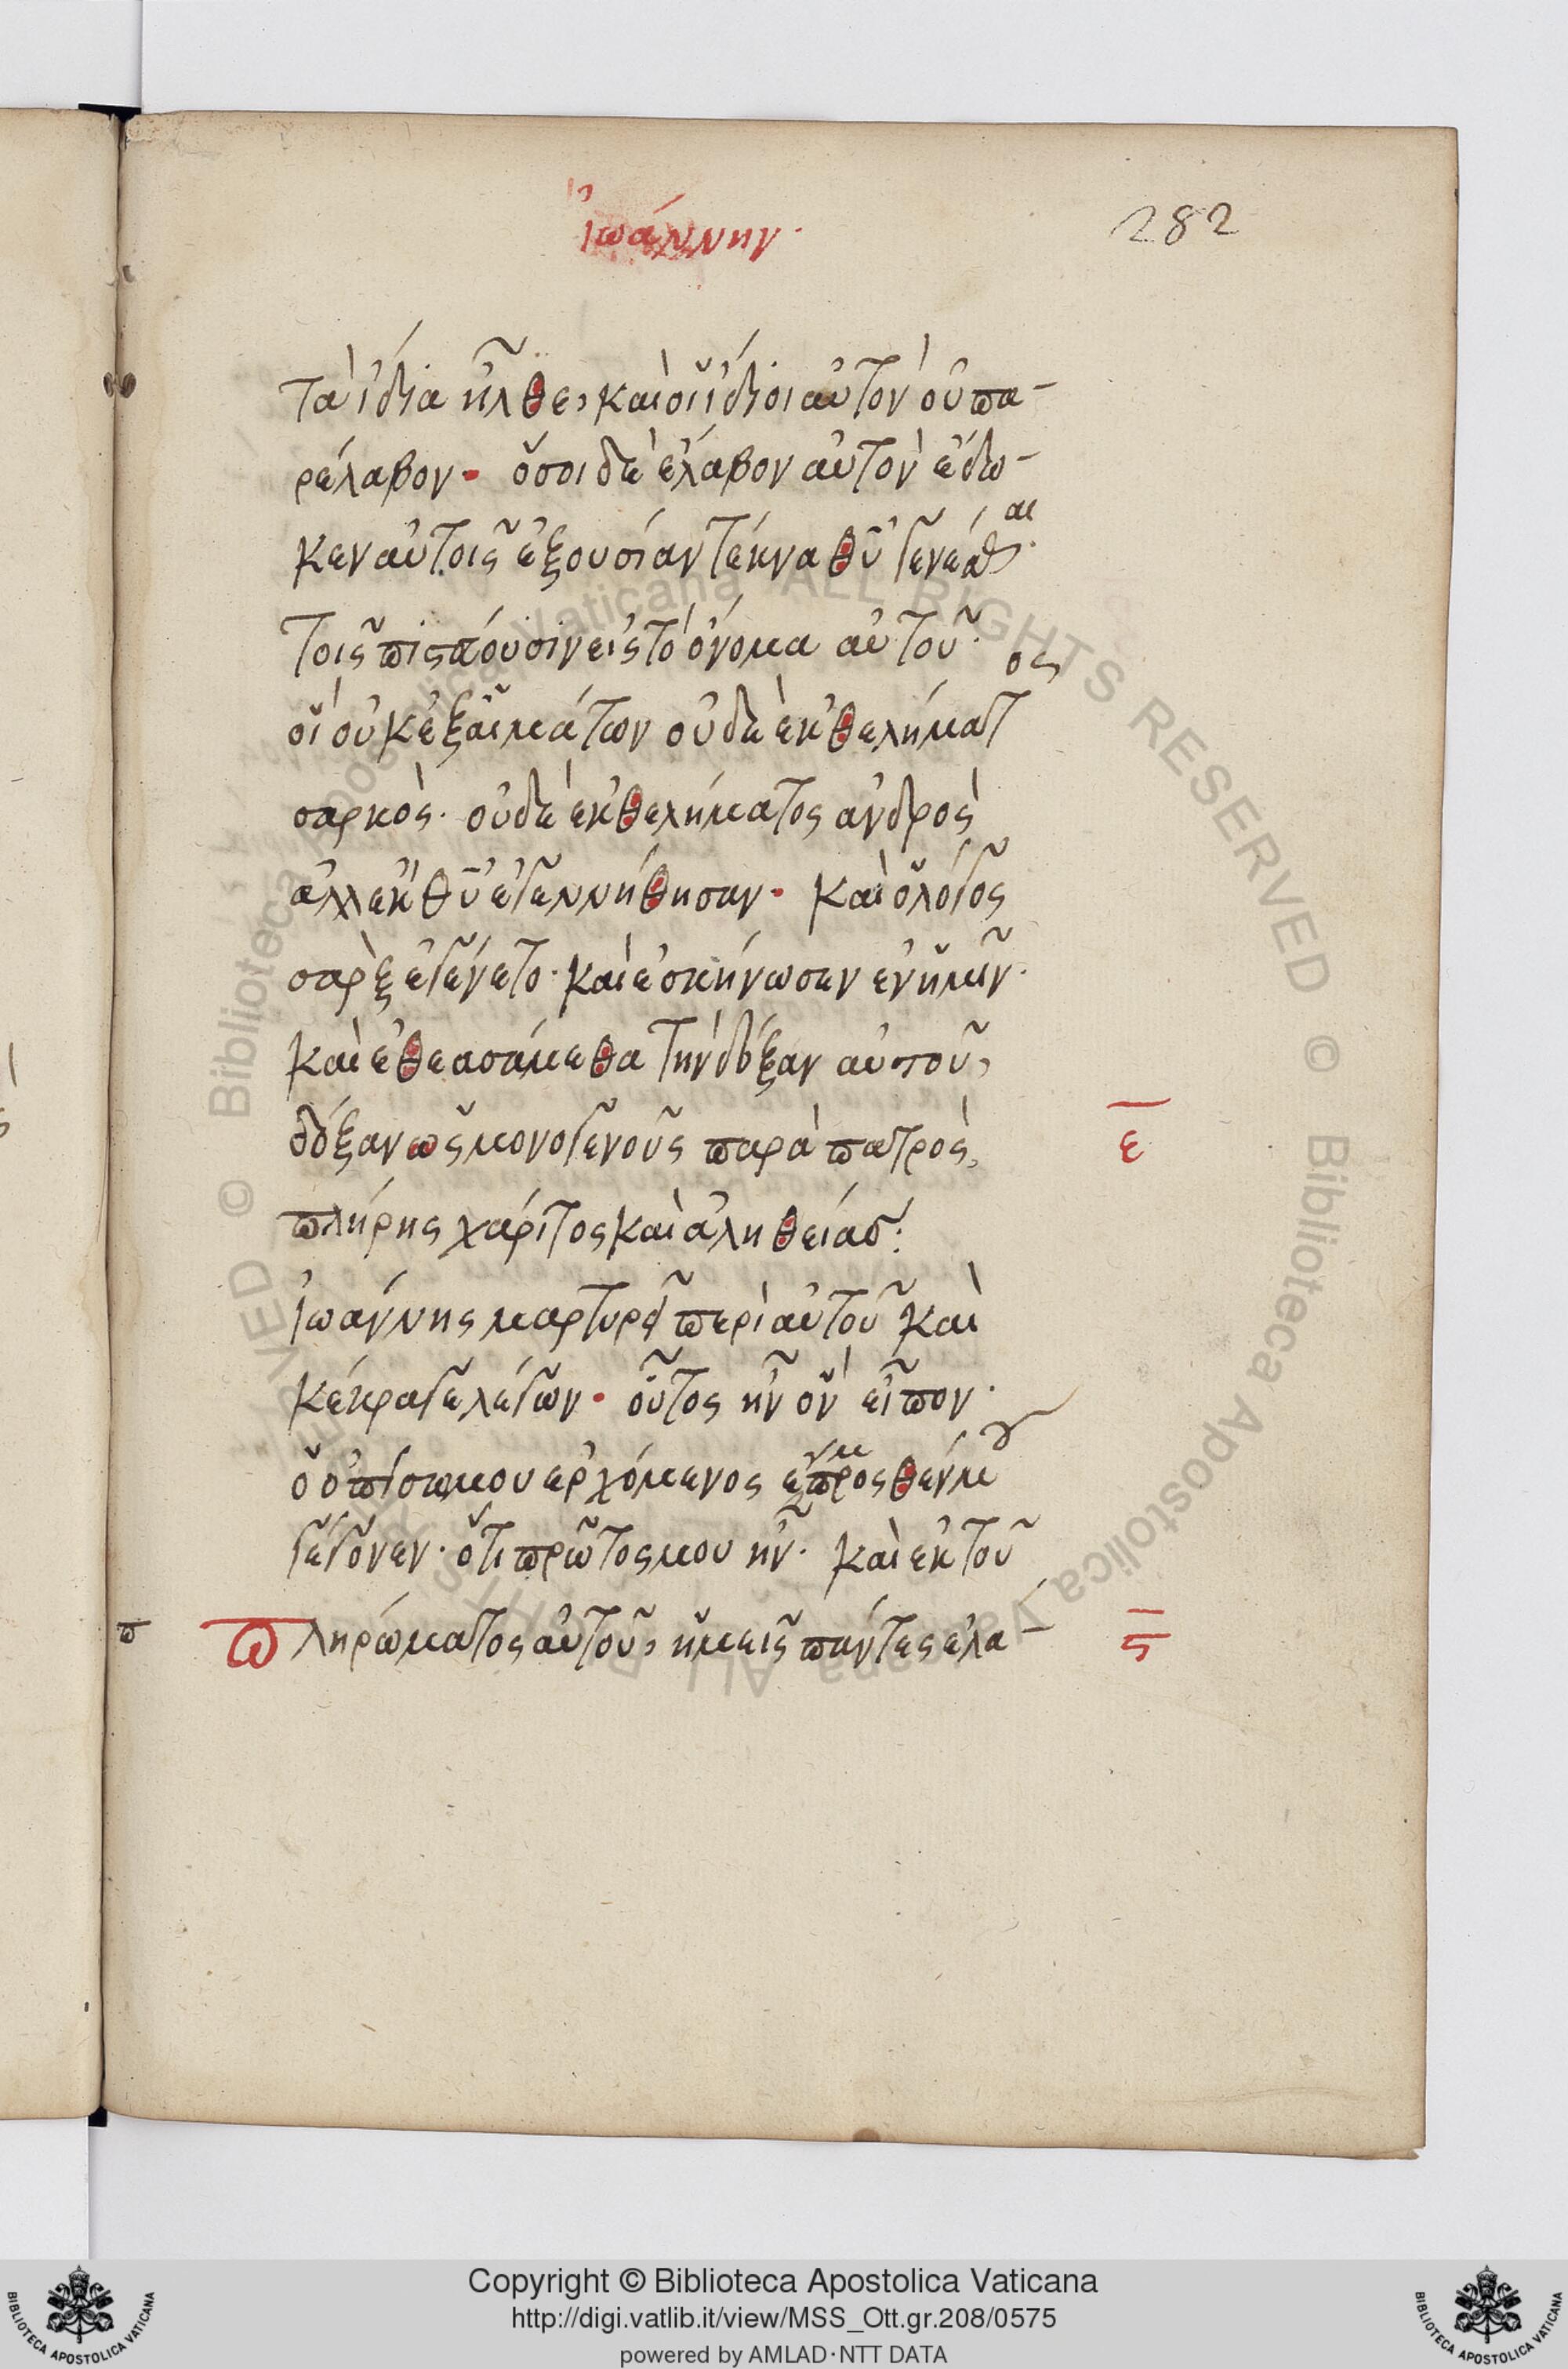 Ἰωάννην·
282
τὰ ἴδια ἦλθε, καὶ οἱ ἴδιοι αὐτὸν οὐ πα-
ρέλαβον· ὅσοι δὲ ἔλαβον αὐτὸν ἔδω-
κεν αὐτοῖς ἐξουσίαν τέκνα θῦ γενέσθαι·
τοῖς πιστεύουσιν εἰς τὸ ὄνομα αὐτοῦ·
οἳ οὐκ ἐξ αἱμάτων οὐδὲ ἐκ θελήματος
σαρκὸς· οὐδὲ ἐκ θελήματος ἀνδρὸς
ἀλλ ἐκ θῦ ἐγεννήθησαν· καὶ ὁ λόγος
σὰρξ ἐγένετο· καὶ ἐσκήνωσεν ἐν ἡμῖν·
καὶ ἐθεασάμεθα τὴν δόξαν αὐτοῦ,
δόξαν ὡς μονογενοῦς παρὰ πατρὸς,
ε
πλήρης χάριτος καὶ ἀληθείας:
Ἰωάννης μαρτυρεῖ περὶ αὐτοῦ καὶ
κέκραγε λέγων· οὗτος ἦν ὃν εἶπον·
ὁ ὀπίσω μου ἐρχόμενος ἔμπροσθέν μου
γέγονεν· ὅτι πρῶτος μου ἦν· καὶ ἐκ τοῦ
π
πληρώματος αὐτοῦ, ἡμεῖς πάντες ἐλά-
ς
Copyright © Biblioteca Apostolica Vaticana
http://digi.vatlib.it/view/MSS_Ott.gr.208/0575
powered by AMLAD·NTT DATA
BIBLIOTECA APOSTOLICA VATICANA
BIBLIOTECA APOSTOLICA VATICANA
© Biblioteca Apostolica Vaticana ALL RIGHTS RESERVED © Biblioteca Apostolica Vaticana ALL RIGHTS RESERVED